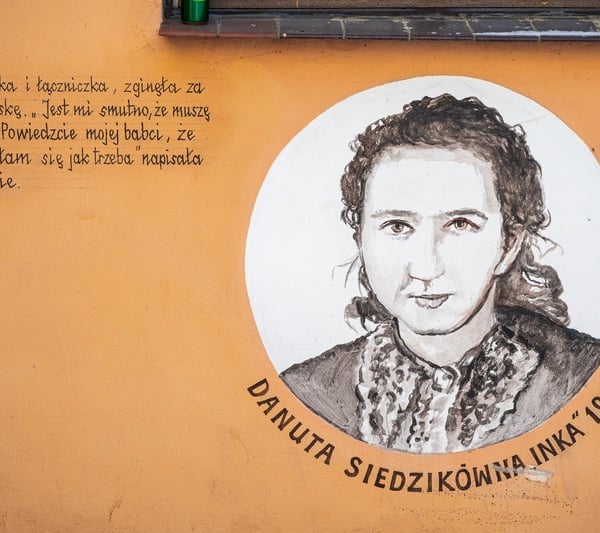 ka i łączniczka, zginęła za
skę. „Jest mi smutno, że muszę
Powiedzcie mojej babci, że
łam się jak trzeba" napisała
ie.
DANUTA SIEDZIKÓWNA INKA" 19